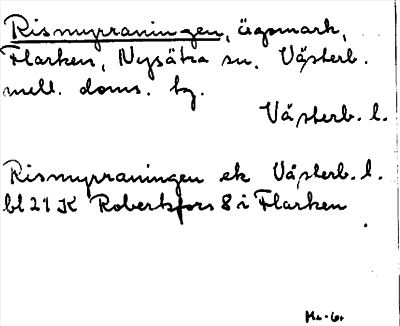 Rismyrraningen, ägomark,
Flarken, Nysätra sn. Västerb.
mell. doms. tg.
Västerb. l.
Rismyrraningen ek Västerb. l.
bl 21 K Robertsfors 8 i Flarken